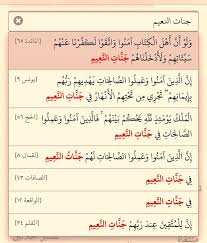 جنات النعيم
وَلَوْ أَنَّ أَهْلَ الْكِتَابِ آمَنُوا وَاتَّقَوْا لَكَفَّرْنَا عَنْهُمْ [المائدة ٦٥]
سَيِّئَاتِهِمْ وَلَأَدْخَلْنَاهُمْ جَنَّاتِ النَّعِيمِ
إِنَّ الَّذِينَ آمَنُوا وَعَمِلُوا الصَّالِحَاتِ يَهْدِيهِمْ رَبُّهُم [يونس ٩]
بِإِيمَانِهِمْ تَجْرِي مِن تَحْتِهِمُ الْأَنْهَارُ فِي جَنَّاتِ النَّعِيمِ
الْمُلْكُ يَوْمَئِذٍ لِّلَّهِ يَحْكُمُ بَيْنَهُمْ فَالَّذِينَ آمَنُوا وَعَمِلُوا [الحج ٥٦]
الصَّالِحَاتِ فِي جَنَّاتِ النَّعِيمِ
إِنَّ الَّذِينَ آمَنُوا وَعَمِلُوا الصَّالِحَاتِ لَهُمْ جَنَّاتُ النَّعِيمِ [لقمان ٨]
فِي جَنَّاتِ النَّعِيمِ [الصافات ٤٣]
فِي جَنَّاتِ النَّعِيمِ [الواقعة ١٢]
إِنَّ لِلْمُتَّقِينَ عِندَ رَبِّهِمْ جَنَّاتِ النَّعِيمِ [القلم ٣٤]